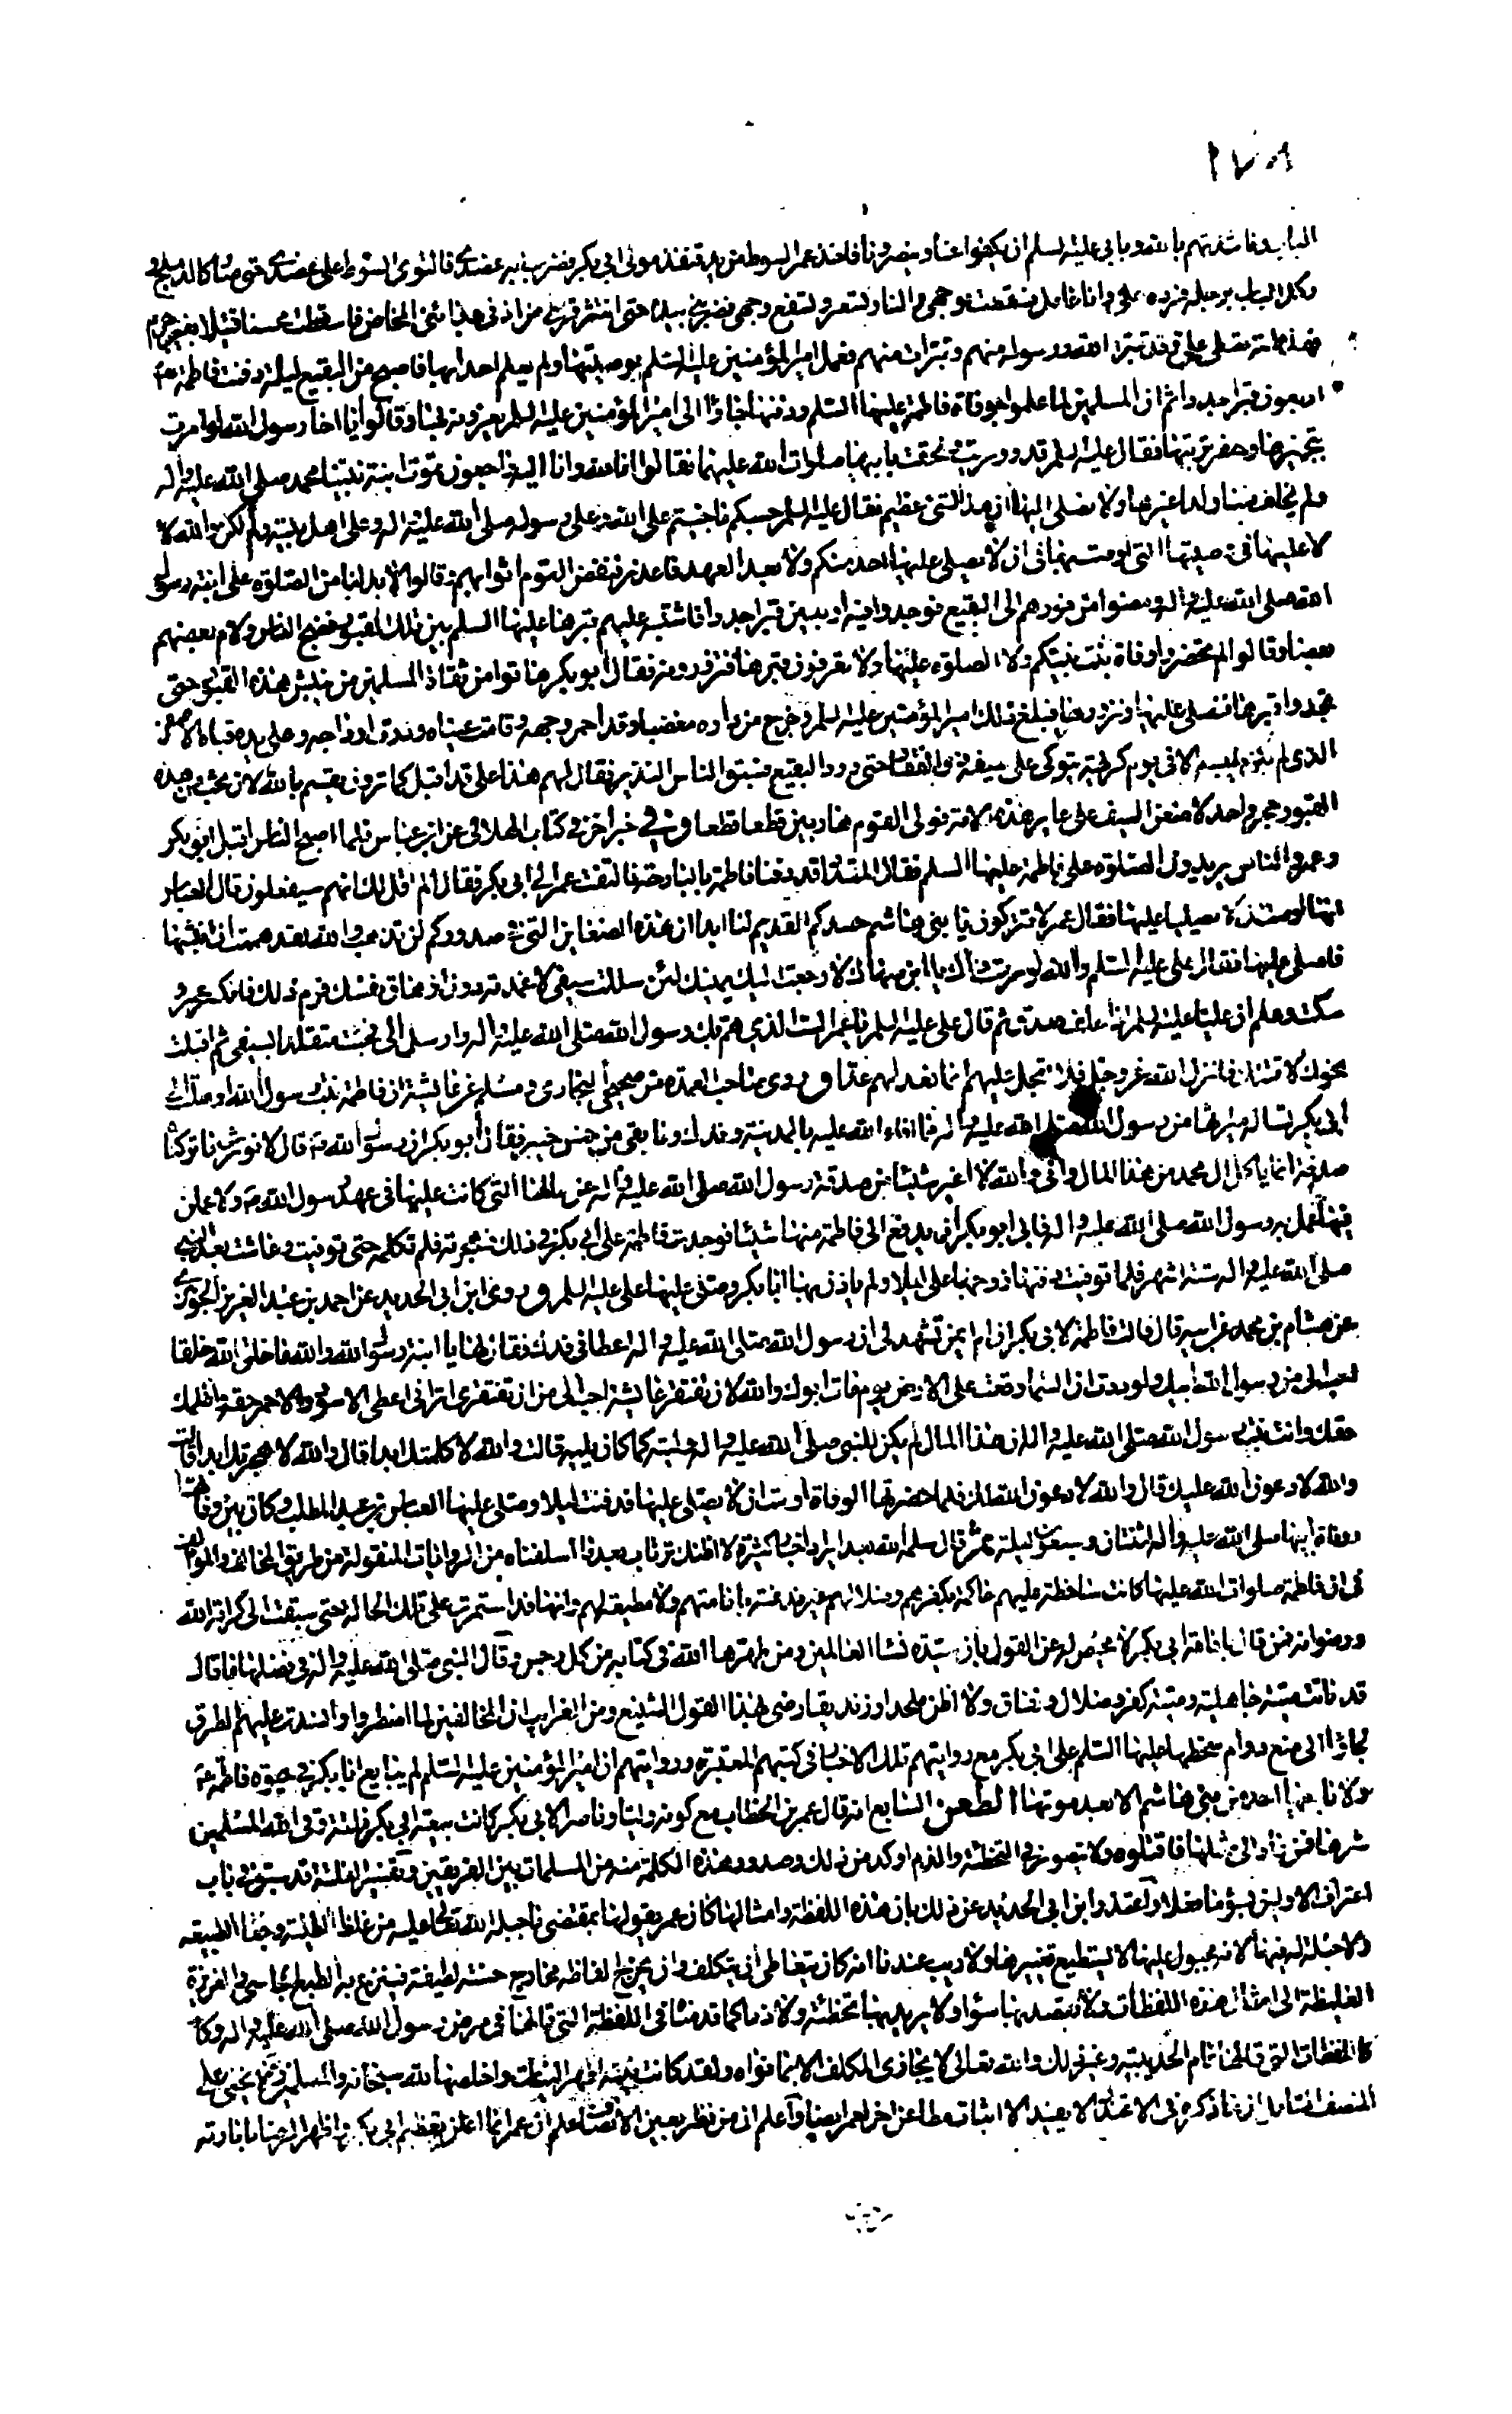 ١٧٨
الباب وناشدتهم بالله وبابي عليه السلم ان يكفوا عنا وينصرونا فاخذ عمر السوط من يد قنفذ مولى ابي بكر فضرب به عضدي فالتوى السوط على عضدي حتى صار كالدملج و
ركل الباب برجله فرده علي وانا حامل فسقطت لوجهي والنار تسعر وتسفع وجهي فضربني بيده حتى انتثر قرطي من اذني وجائني المخاض فاسقطت محسنا قتيلا بغير جرم
فهذه امة تصلي علي وقد تبرا الله ورسوله منهم وتبرات منهم فعمل امير المؤمنين عليه السلم بوصيتها ولم يعلم احدا بها فاصبح من البقيع ليلة دفنت فاطمة
اربعون قبرا جددا ثم ان المسلمين لما علموا بوفاة فاطمة عليها السلم ودفنها جاؤا الى امير المؤمنين عليه السلم يعزونه بها وقالوا يا اخا رسول الله لو امرت
بتجهيزها وحفر تربتها فقال عليه السلم قد ووريت ولحقت بابيها صلوات الله عليهما فقالوا انا لله وانا اليه راجعون تموت ابنة نبينا محمد صلى الله عليه واله
ولم يخلف فينا ولدا غيرها ولا نصلي اليها ان هذا لشئ عظيم فقال عليه السلم حسبكم ما جنيتم على الله وعلى رسوله صلى الله عليه اله وعلى اهل بيته ولم اكن والله
لاعصيها في وصيتها التي اوصت بها في ان لا يصلي عليها احد منكم ولا بعد العهد فاعذر فنفض القوم اثوابهم وقالوا لا بد لنا من الصلوة على ابنة رسول
الله صلى الله عليه واله ومضوا من فورهم الى البقيع فوجدوا فيه اربعين قبرا جددا فاشتبه عليهم قبرها عليها السلم بين تلك القبور فضج الناس ولام بعضهم
بعضا وقالوا لم تحضروا وفاة بنت نبيكم ولا الصلوة عليها ولا تعرفون قبرها فتزورونه فقال ابو بكر هاتوا من ثقاة المسلمين من ينبش هذه القبور حتى
تجدوا قبرها فنصلي عليها ونزورها فبلغ ذلك امير المؤمنين عليه السلم فخرج من داره مغضبا وقد احمر وجهه وقامت عيناه ودرت اوداجه وعلى يده قباه الاصفر
الذي لم يكن يلبسه الا في يوم كريهة يتوكى على سيفه ذي الفقار حتى ورد البقيع فسبق الناس النذير فقال لهم هذا علي قد اقبل كما ترون يقسم بالله لان بحث من هذه
القبور حجر واحد لاضعن السيف على غابر هذه الامة فولى القوم هاربين قطعا قطعا وفي خبر اخر في كتاب الهلالي عن ابن عباس فلما اصبح الناس اقبل ابو بكر
وعمر والناس يريدون الصلوة على فاطمة عليها السلم فقال المقداد قد دفنا فاطمة البارحة فالتفت عمر الى ابي بكر فقال الم اقل لك انهم سيفعلون قال العباس
انها اوصت ان لا تصليا عليها فقال عمر لا تتركون يا بني هاشم حسدكم القديم لنا ابدا ان هذه الضغاين التي في صدوركم لن تذهب والله لقد هممت ان انبشها
فاصلي عليها فقال علي عليه السلم والله لو رمت ذاك يا ابن صهاك لا رجعت اليك يمينك لئن سللت سيفي لا غمدته دون ازهاق نفسك فرم ذلك فانكسر عمر و
سكت وعلم ان عليا عليه السلم اذا حلف صدق ثم قال علي عليه السلم يا عمر الست الذي هم بك رسول الله صلى الله عليه واله وارسل الي فجئت متقلدا بسيفي ثم اقبلت
نحوك لاقتلك فانزل الله عز وجل فلا تعجل عليهم انما نعد لهم عدا وروى صاحب العمدة من صحيحي البخاري ومسلم عن عايشة ان فاطمة بنت رسول الله ارسلت الى
ابي بكر تساله ميراثها من رسول الله صلى الله عليه واله مما افاء الله عليه بالمدينة وفدك وما بقي من خمس خيبر فقال ابو بكر ان رسول الله قال لا نورث ما تركناه
صدقة انما ياكل ال محمد من هذا المال واني والله لا اغير شيئا من صدقة رسول الله صلى الله عليه واله عن حالها التي كانت عليها في عهد رسول الله ولاعملن
فيها بما عمل به رسول الله صلى الله عليه واله فابى ابو بكر ان يدفع الى فاطمة منها شيئا فوجدت فاطمة على ابي بكر في ذلك فهجرته فلم تكلمه حتى توفيت وعاشت بعد النبي
صلى الله عليه واله ستة اشهر فلما توفيت دفنها زوجها علي ليلا ولم ياذن بها ابا بكر وصلى عليها علي عليه السلم وروى ابن ابي الحديد عن احمد بن عبد العزيز الجوهري
عن هشام بن محمد عن ابيه قال قالت فاطمة لابي بكر ان ام ايمن تشهد لي ان رسول الله صلى الله عليه واله اعطاني فدك فقال لها يا ابنة رسول الله والله ما خلق الله خلقا
احب الي من رسول الله ابيك ولوددت ان السماء وقعت على الارض يوم مات ابوك والله لان تفتقر عايشة احب الي من ان تفتقري اتراني اعطي الاسود والاحمر حقه واظلمك
حقك وانت بنت رسول الله صلى الله عليه واله ان هذا المال لم يكن للنبي صلى الله عليه واله وليته كما كان يليه قالت والله لا كلمتك ابدا قال والله لا هجرتك ابدا قالت
والله لادعون الله عليك قال والله لادعون الله لك فلما حضرتها الوفاة اوصت ان لا يصلى عليها فدفنت ليلا وصلى عليها العباس بن عبد المطلب وكان بين وفاتها
ووفاة ابيها صلى الله عليه واله اثنتان وسبعون ليلة ثم قال سلمه الله بعد ايراد اخبار كثيرة لا اظنك ترتاب بعد ما اسلفناه من الروايات المنقولة من طريق المخالف والموالف
في ان فاطمة صلوات الله عليها كانت ساخطة عليهم حاكمة بكفرهم وضلالهم غير مذعنة بامامتهم ولا مطيعة لهم وانها قد استمرت على تلك الحالة حتى سبقت الى كرامة الله
ورضوانه فمن قال بامامة ابي بكر لا محيص له عن القول بان سيدة نساء العالمين ومن طهرها الله في كتابه من كل رجس وقال النبي صلى الله عليه واله في فضلها ما قال
قد ماتت ميتة جاهلية وميتة كفر وضلال ونفاق ولا اظن ملحدا وزنديقا رضي بهذا القول الشنيع ومن الغرايب ان المخالفين لما اضطروا وانسدت عليهم الطرق
لجاؤا الى منع دوام سخطها عليها السلم على ابي بكر مع روايتهم تلك الاخبار في كتبهم المعتبرة وروايتهم ان امير المؤمنين عليه السلم لم يبايع ابا بكر في حيوة فاطمة
ولا بايعه احد من بني هاشم الا بعد موتها الطعن السابع انه قال عمر بن الخطاب مع كونه وليا وناصرا لابي بكر كانت بيعة ابي بكر فلتة وقى الله المسلمين
شرها فمن عاد الى مثلها فاقتلوه ولا يتصور في التخطئة والذم اوكد من ذلك وصدور هذه الكلمة منه من المسلمات بين الفريقين وتفسير الفلتة قد سبق في باب
اعترف الاولين بسؤ ما فعلا واعتذر ابن ابي الحديد عن ذلك بان هذه اللفظة وامثالها كان عمر يقولها بمقتضى ما جبله الله تعالى عليه من غلظ الطينة وجفاء الطبيعة
ولا حيلة له فيها لانه مجبول عليها لا يستطيع تغييرها ولا ريب عندنا انه كان يتعاطى ان يتكلف وان يخرج الفاظه مخارج حسنة لطيفة فينزع به الطبع الجاسي والغريزة
الغليظة الى امثال هذه اللفظات ولا يقصد بها سؤا ولا يريد بها تخطئة ولا ذما كما قدمنا في اللفظة التي قالها في مرض رسول الله صلى الله عليه واله وكا
كاللفظات التي قالها عام الحديبية وغير ذلك والله تعالى لا يجازي المكلف الا بما نواه ولقد كانت نيته اطهر النيات واخلصها لله سبحانه وللمسلمين ولا يخفى على
المنصف المتامل ان ما ذكره في الاعتذار لا يفيد الا اثبات مطاعن اخر لعمر ايضا واعلم ان من نظر بعين الانصاف علم ان عمر انما اعلن بتعظيم ابي بكر واظهر الرضا بامارته